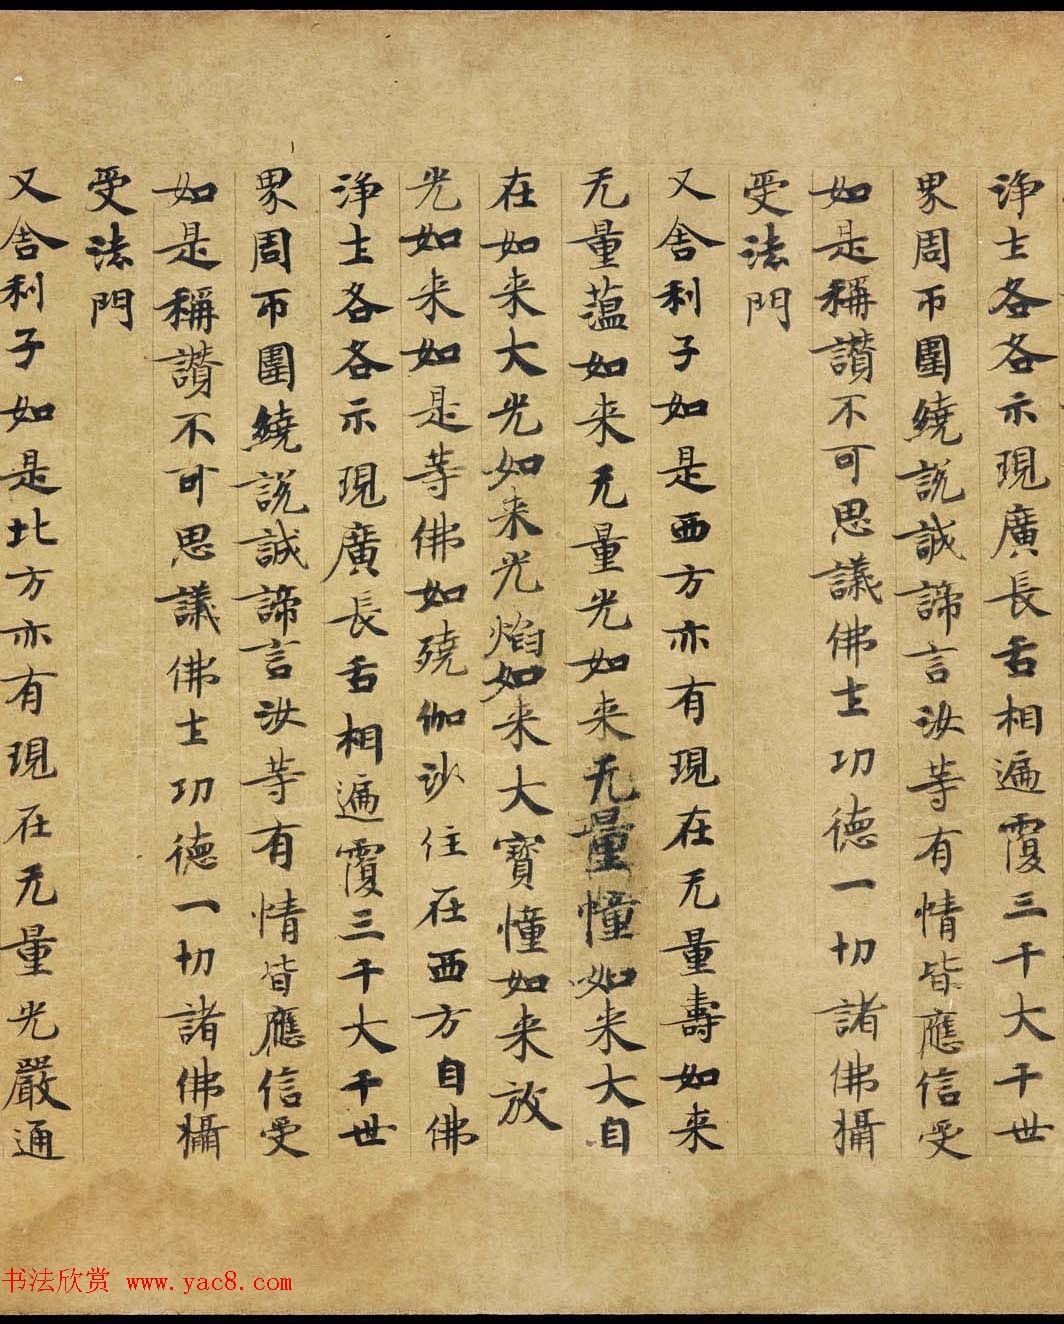 淨土各各示現廣長舌相遍覆三千大千世
界周帀圍繞說誠諦言汝等有情皆應信受
如是稱讚不可思議佛土功德一切諸佛攝
受法門
又舍利子如是西方亦有現在无量壽如来
无量藴如来无量光如来无量幢如来大自
在如来大光如来光焰如来大寶幢如来放
光如来如是等佛如殑伽沙住在西方自佛
淨土各各示現廣長舌相遍覆三千大千世
界周帀圍繞說誠諦言汝等有情皆應信受
如是稱讚不可思議佛土功德一切諸佛攝
受法門
又舍利子如是北方亦有現在无量光嚴通
书法欣赏 www.yac8.com